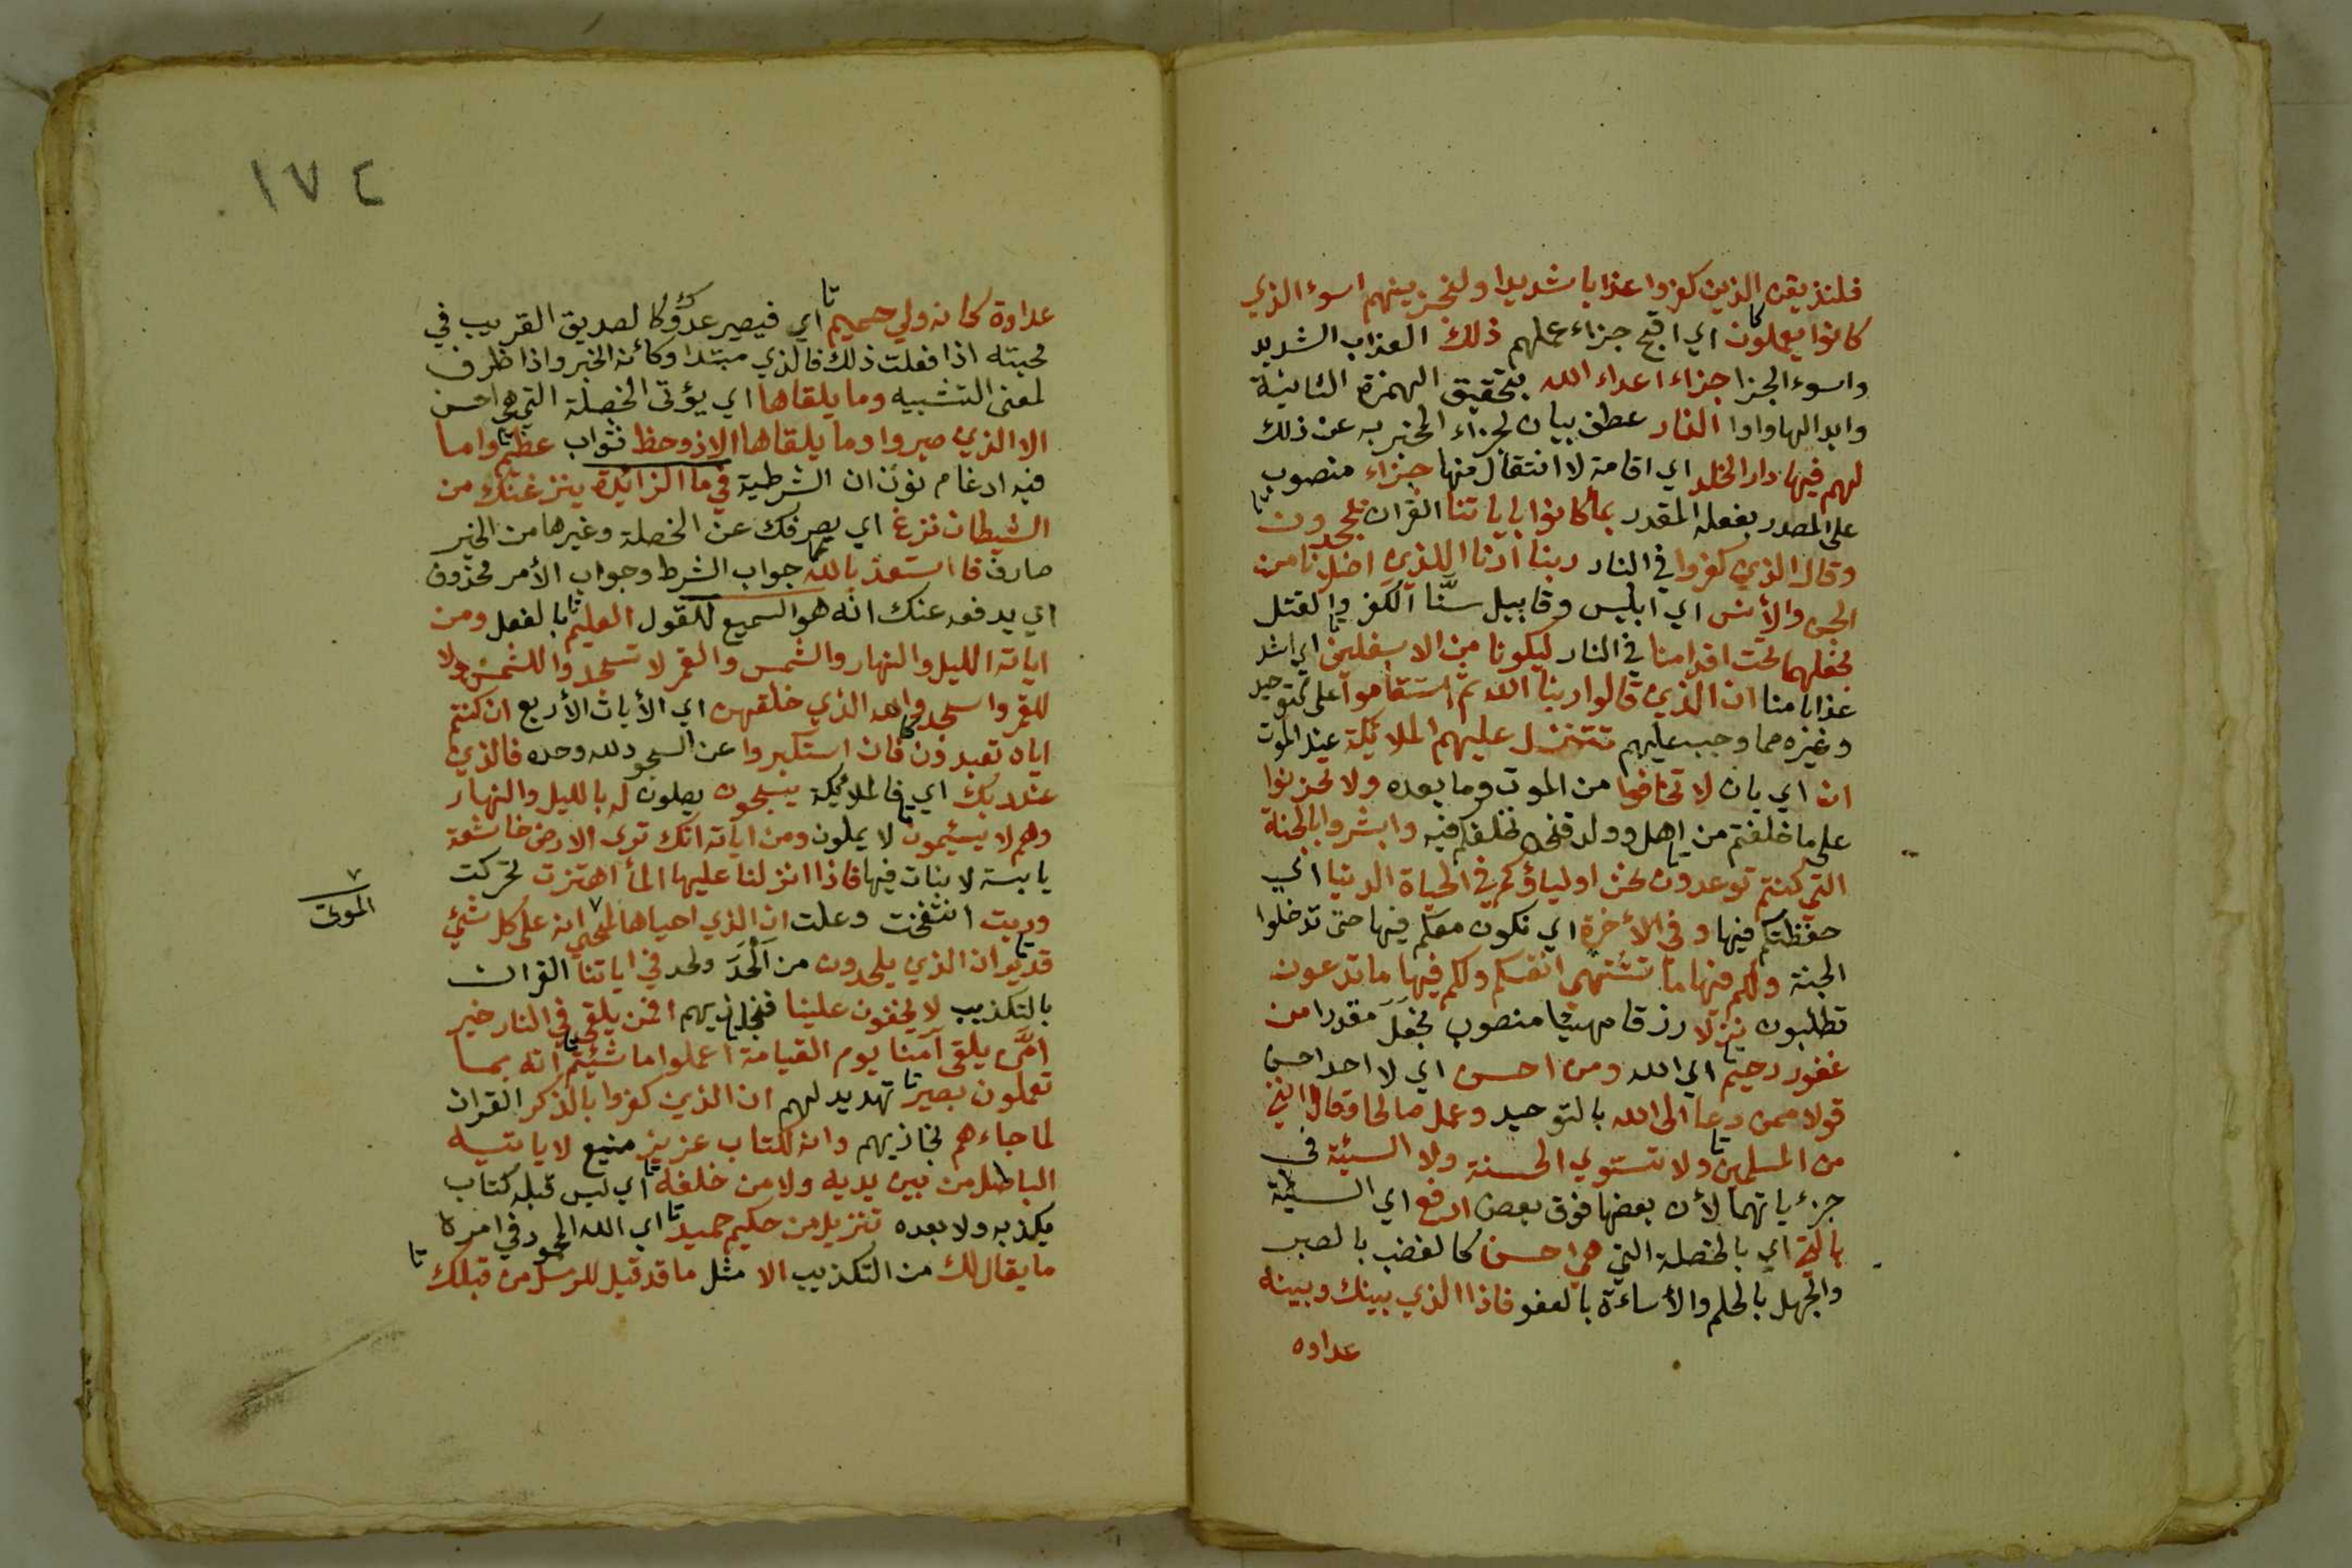 فلنذيقن الذين كفروا عذابا شديدا ولنجزينهم اسوء الذي
كانوا يعملون اي اقبح جزاء عملهم ذلك العذاب الشديد
واسوء الجزا جزاء اعداء الله بتحقيق الهمزة الثانية
وابدالها واوا النار عطف بيان لجزاء المخبر به عن ذلك
لهم فيها دار الخلد اي اقامة لا انتقال منها جزاء منصوب
على المصدر بفعله المقدر بما كانوا باياتنا القران يجحدون
وقال الذين كفروا في النار ربنا ارنا اللذين اضلانا من
الجن والأنس اي ابليس وقابيل سنّا الكفر والقتل
نجعلهما تحت اقدامنا في النار ليكونا من الاسفلين اي اشد
عذابا منا ان الذين قالوا ربنا الله ثم استقاموا على التوحيد
وغيره مما وجب عليهم تتنزل عليهم الملائكة عند الموت
ان اي بان لا تخافوا من الموت وما بعده ولا تحزنوا
على ما خلفتم من اهل وولد فنحن نخلفكم فيه وابشروا بالجنة
التي كنتم توعدون نحن اولياؤكم في الحياة الدنيا اي
حفظتكم فيها وفي الأخرة اي نكون معكم فيها حتى تدخلوا
الجنة ولكم فيها ما تشتهي انفسكم ولكم فيها ما تدعون
تطلبون نزلا رزقا مهيئا منصوب بجعل مقدرا من
غفور رحيم اي الله ومن احسن اي لا احد احسن
قولا ممن دعا الى الله بالتوحيد وعمل صالحا وقال انني
من المسلمين ولا تستوي الحسنة ولا السيئة في
جزءياتهما لأن بعضها فوق بعض ادفع اي السيئة
بالتي اي بالخصلة التي هي احسن كالغضب بالصبر
والجهل بالحلم والأساءة بالعفو فاذا الذي بينك وبينه
عداوه
١٧٤
عداوة كانه ولي حميم اي فيصير عدوك كالصديق القريب في
محبته اذا فعلت ذلك فالذي مبتدا وكأنه الخبر واذا ظرف
لمعنى التشبيه وما يلقاها اي يؤتى الخصلة التي هي احسن
الا الذين صبروا وما يلقاها الا ذو حظ ثواب عظيم واما
فيه ادغام نون ان الشرطية في ما الزائدة ينزغنك من
الشيطان نزغ اي يصرفك عن الخصلة وغيرها من الخير
صارف فاستعذ بالله جواب الشرط وجواب الأمر محذوف
اي يدفعه عنك انه هو السميع للقول العليم بالفعل ومن
اياته الليل والنهار والشمس والقمر لا تسجدوا للشمس ولا
للقمر واسجدوا لله الذي خلقهن اي الأيات الأربع ان كنتم
اياه تعبدون فان استكبروا عن السجود لله وحده فالذين
عند ربك اي فالملائكة يسبحون يصلون له بالليل والنهار
وهم لا يسئمون لا يملون ومن اياته انك ترى الارض خاشعة
يابسة لا نبات فيها فاذا انزلنا عليها المأ اهتزت تحركت
وربت انتفخت وعلت ان الذي احياها لمحيي انه على كل شيئ
الموتى
قدير ان الذين يلحدون من اَلْحَدَ ولحد في اياتنا القران
بالتكذيب لا يخفون علينا فنجازيهم افمن يلقى في النار خير
امّن يلقى آمنا يوم القيامة اعملوا ما شئتم انه بما
تعملون بصير تهديد لهم ان الذين كفروا بالذكر القران
لما جاءهم نجازيهم وانه لكتاب عزيز منيع لا ياتيه
الباطل من بين يديه ولا من خلفه اي ليس قبله كتاب
يكذبه ولا بعده تنزيل من حكيم حميد اي الله المحمود في امره
ما يقال لك من التكذيب الا مثل ما قد قيل للرسل من قبلك